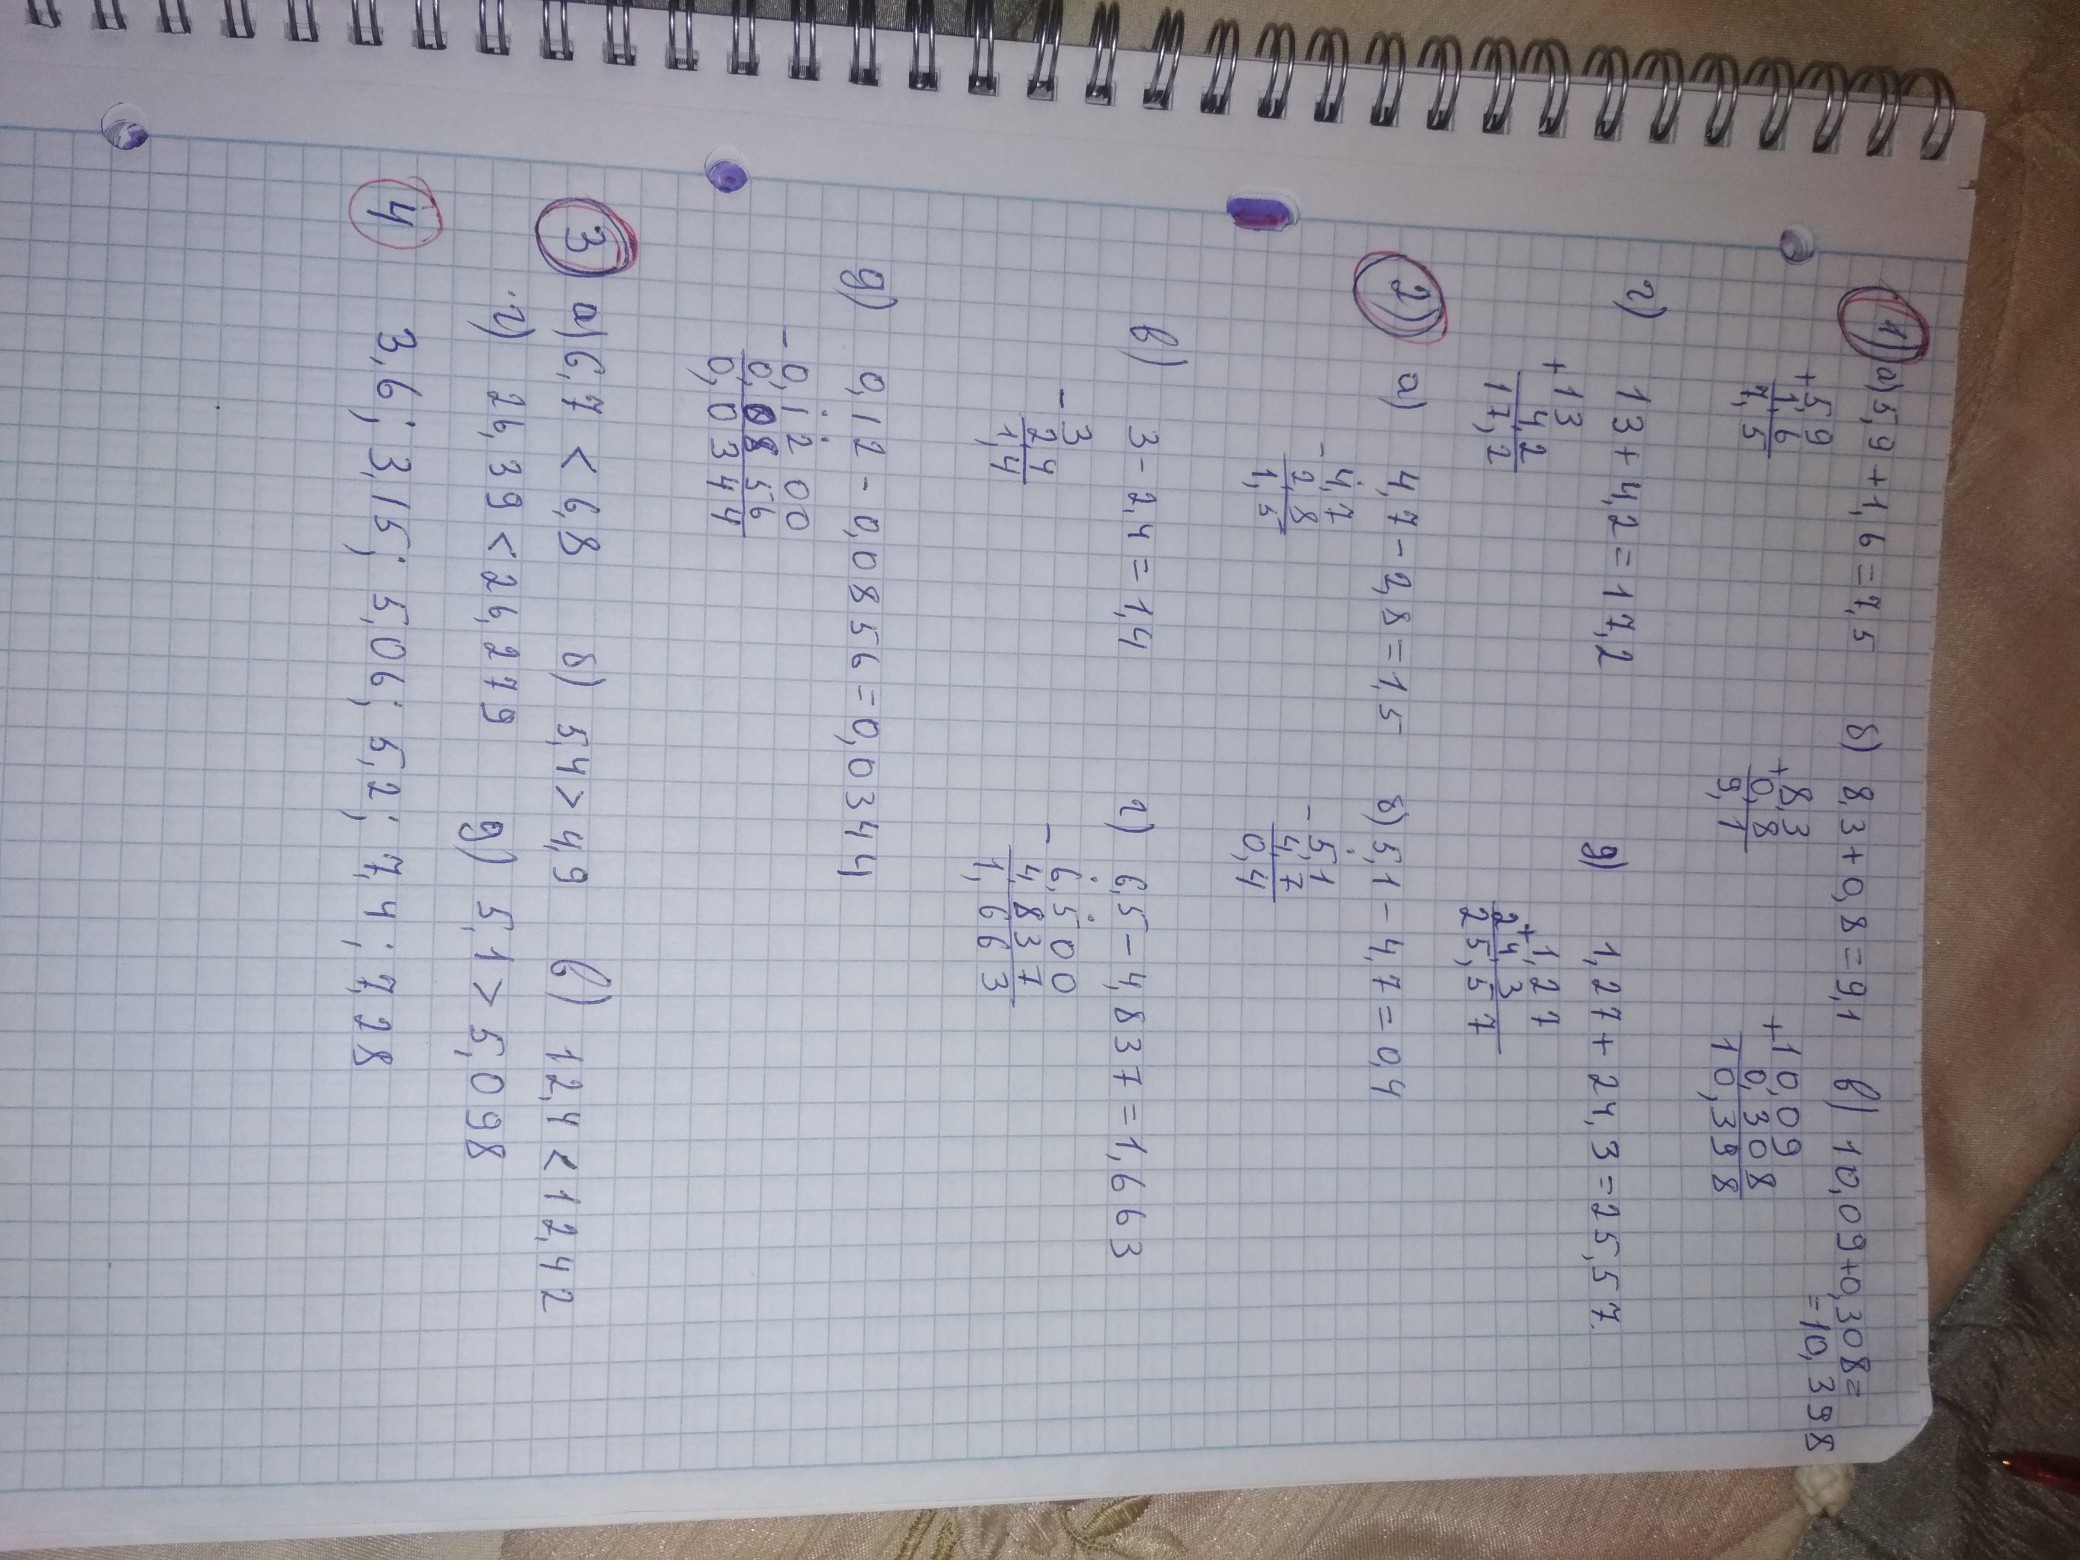 1) а) 5,9 + 1,6 = 7,5 б) 8,3 + 0,8 = 9,1 в) 10,09 + 0,308 =
= 10,398
+ 5,9 + 8,3 + 10,09
1,6 0,8 0,308
7,5 9,1 10,398
г) 13 + 4,2 = 17,2 д) 1,27 + 24,3 = 25,57
+ 13 + 1,27
4,2 24,3
17,2 25,57
2) а) 4,7 - 2,8 = 1,5 б) 5,1 - 4,7 = 0,4
- 4,7 - 5,1
2,8 4,7
1,5 0,4
в) 3 - 2,4 = 1,4 г) 6,5 - 4,837 = 1,663
- 3 - 6,500
2,4 4,837
1,4 1,663
д) 0,12 - 0,0856 = 0,0344
- 0,1200
0,0856
0,0344
3 а) 6,7 < 6,8 б) 5,4 > 4,9 в) 12,4 < 12,42
г) 26,39 < 26,279 д) 5,1 > 5,098
4 3,6; 3,15; 5,06; 5,2; 7,4; 7,28